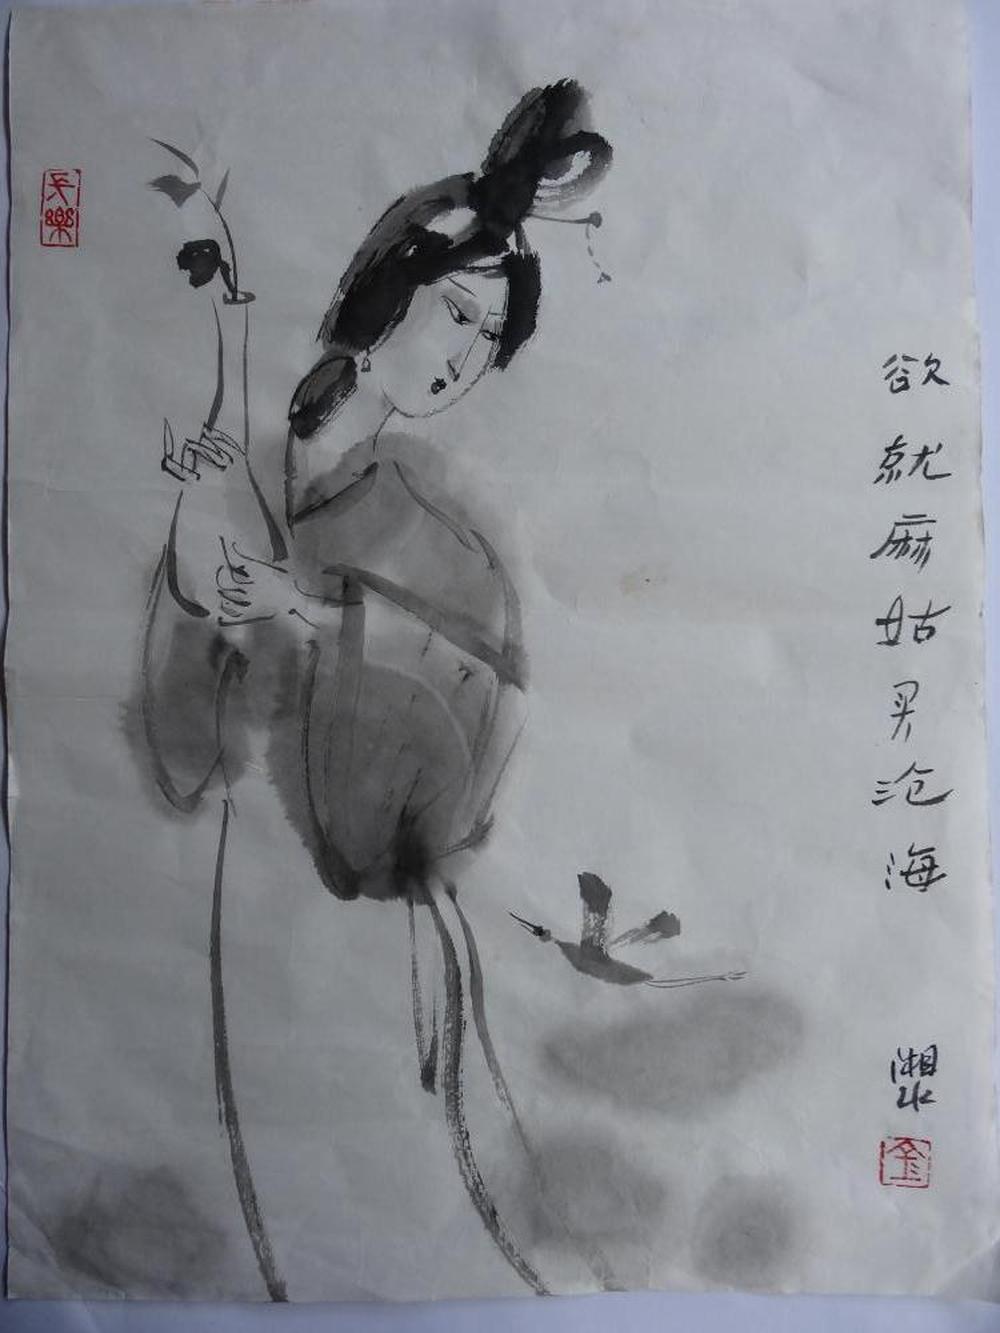 欲就麻姑买沧海
湘水
長樂